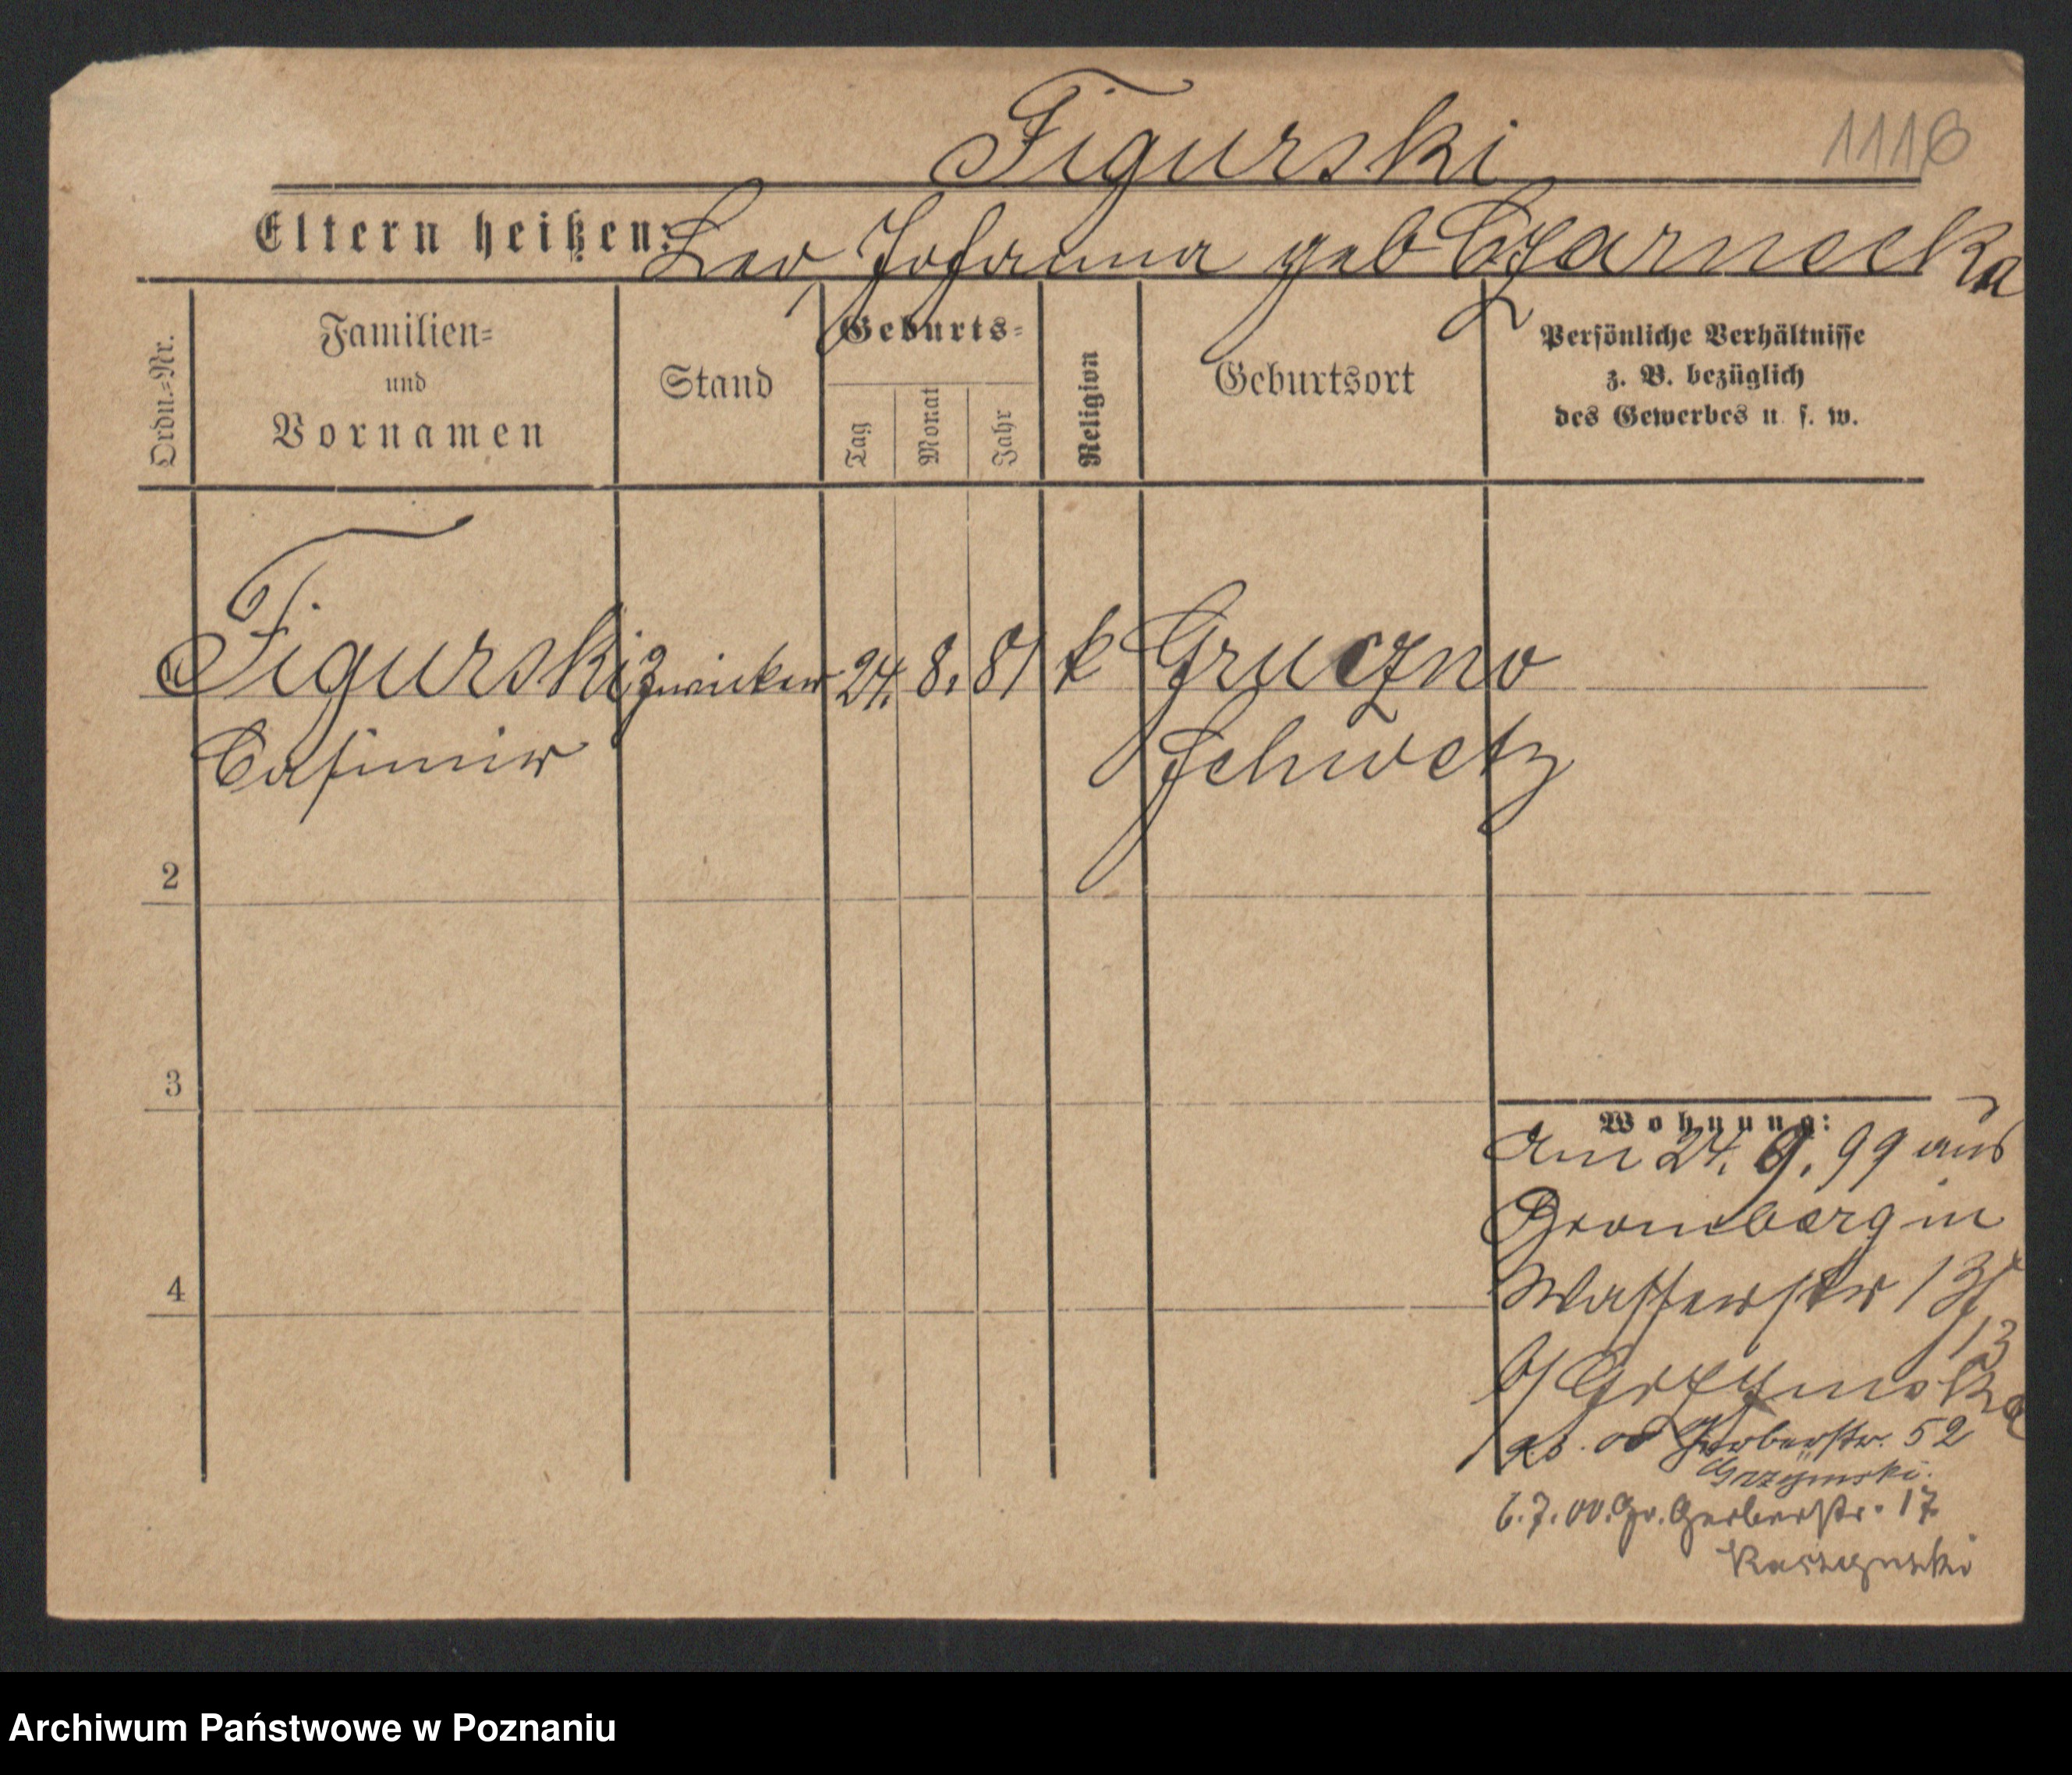 Figurski
1116
Eltern heißen: Leo, Johanna geb Czarnecka
Ordn.=Nr.
Familien=
und
Vornamen
Stand
Geburts=
Tag
Monat
Jahr
Religion
Geburtsort
Persönliche Verhältnisse
z. B. bezüglich
des Gewerbes u. s. w.
1 Figurski Zwicker 24. 8. 81 k Gruczno
Casimir Schwetz
2
3
4
Wohnung:
Am 24. 9. 99 aus
Bromberg in
Wasserstr 13/
13
b/ Grzymska
Gerberstr. 52
Grzymski.
6.7.00. Gr. Gerberstr. 17
Archiwum Państwowe w Poznaniu